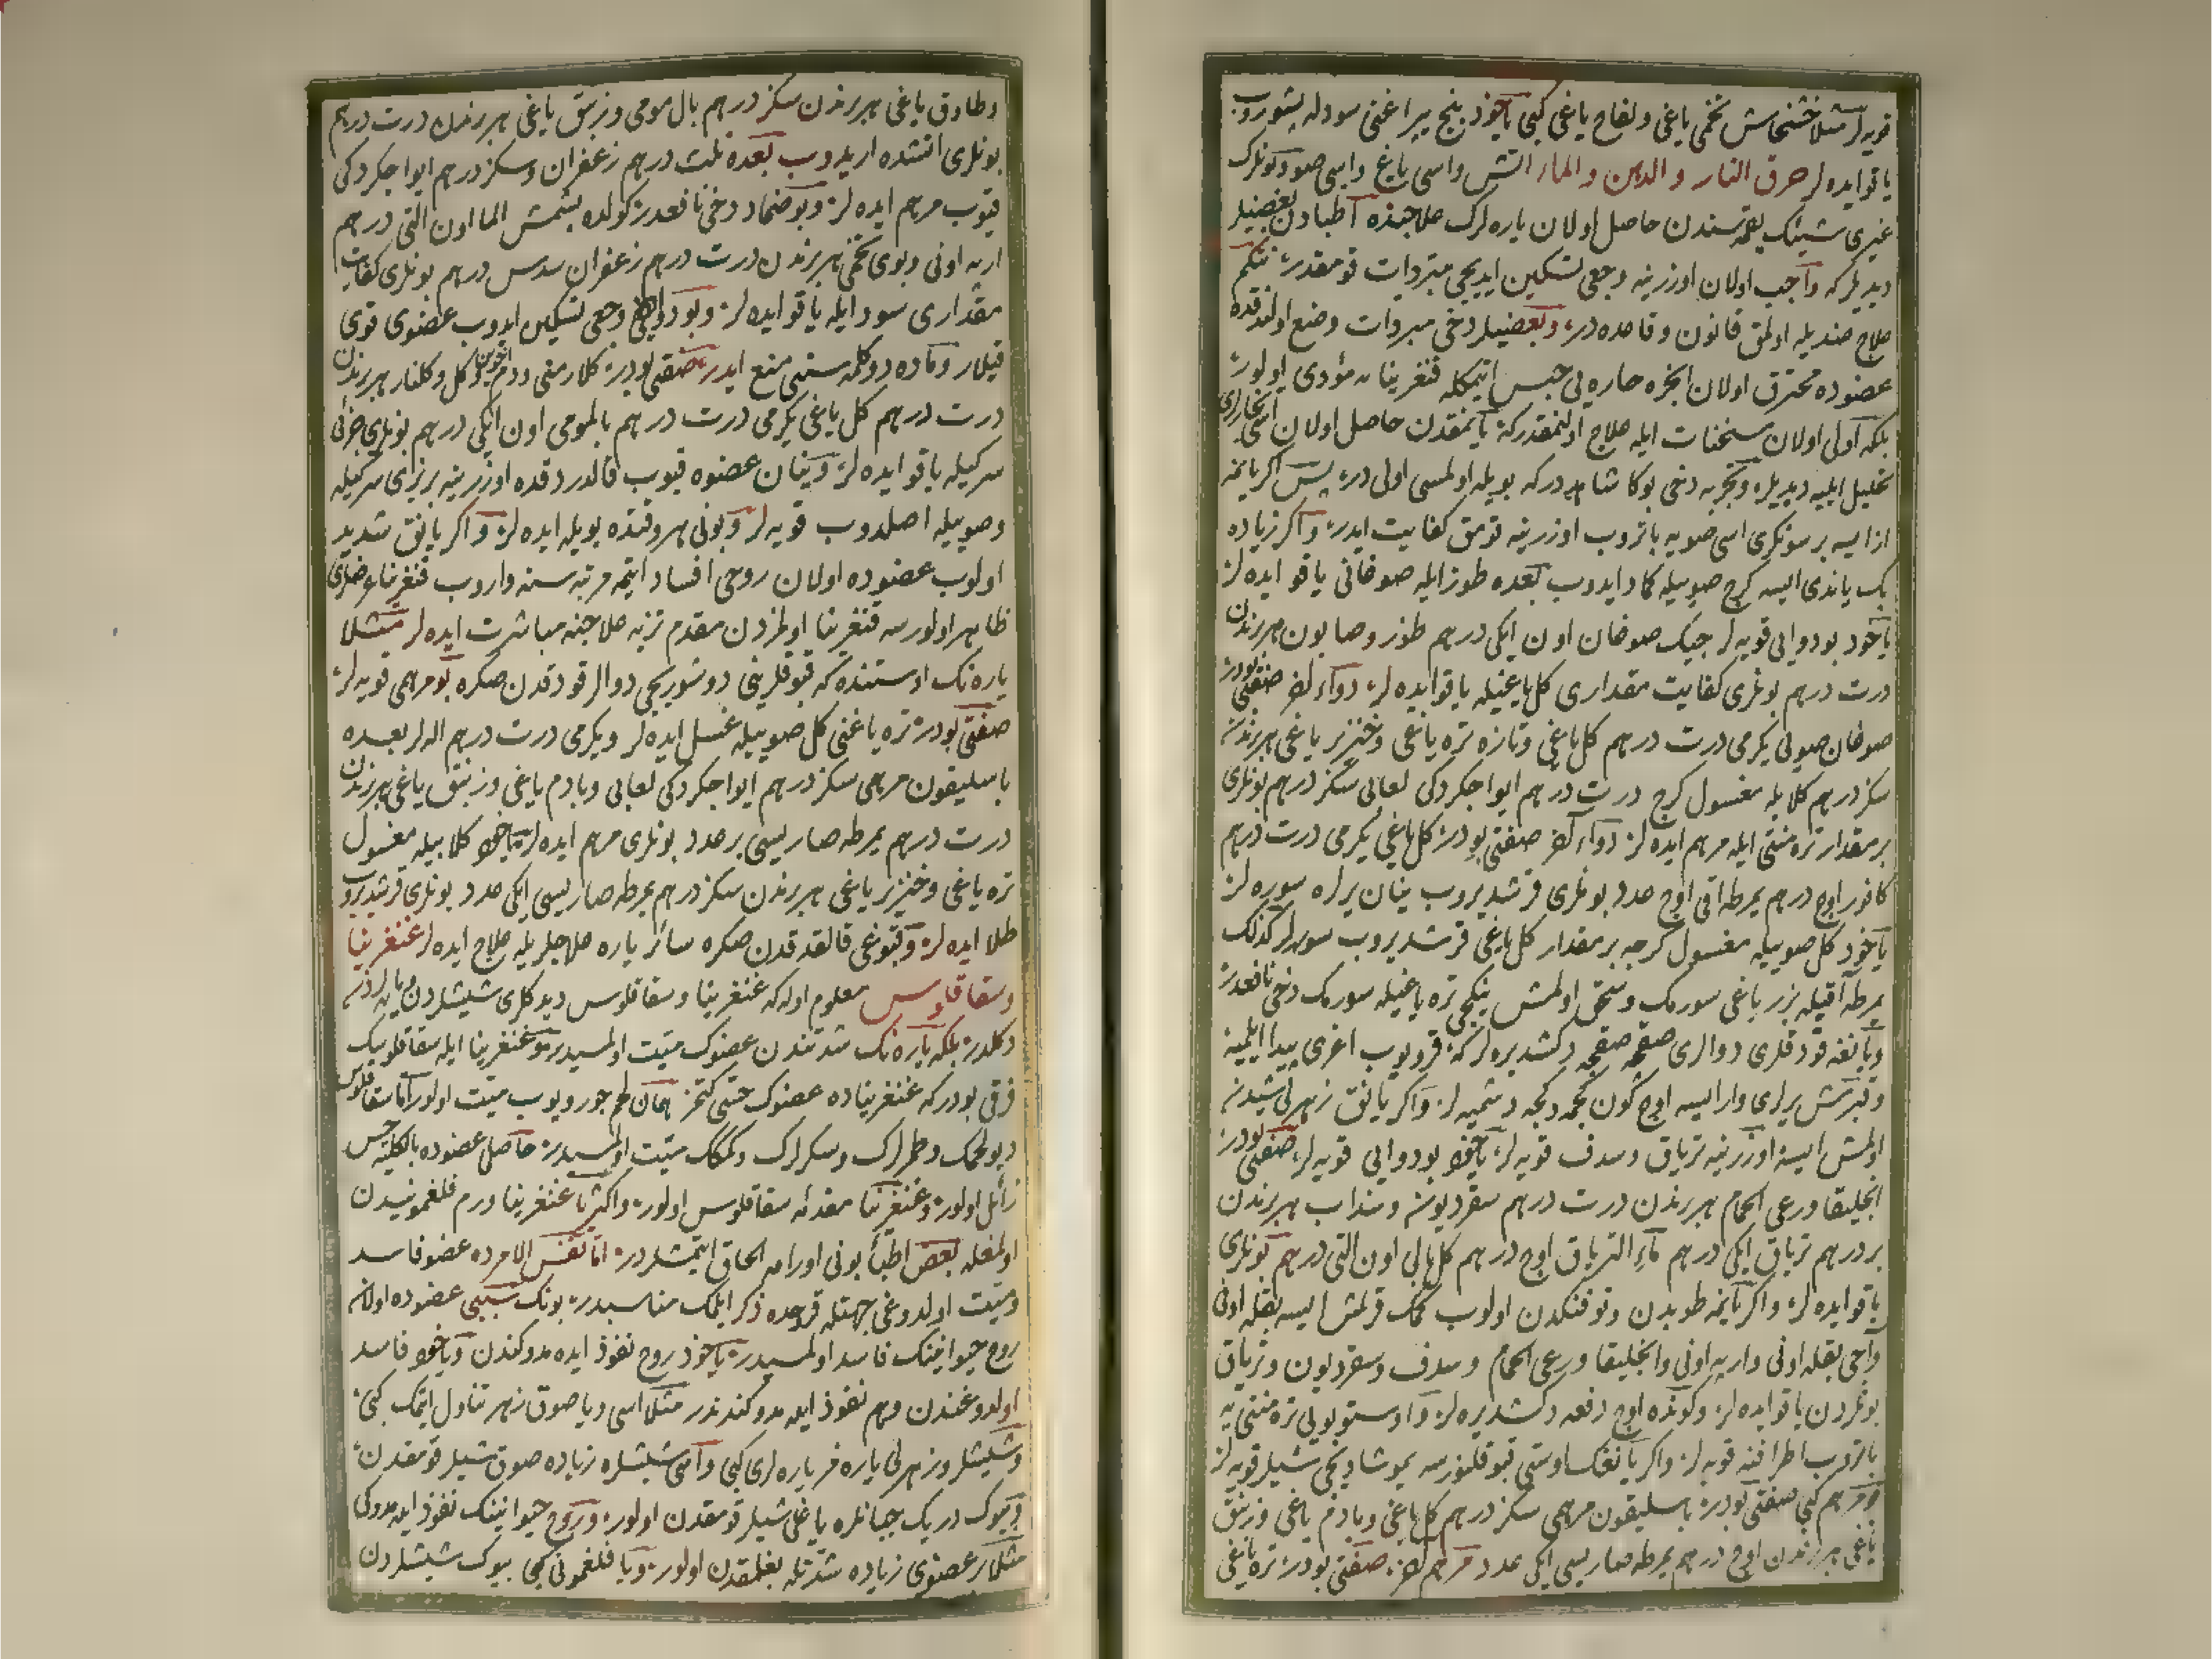 قویه‌لر مثلا خشخاش تخمی یاغی و لفاح یاغی کبی یاخود بنج یپراغنی سودله پشوروب
یاقو ایده‌لر حرق النار و الدهن و الماء آتش و اسی یاغ و اسی صو و بونلرک
غیری شیئک یقمه‌سندن حاصل اولان یاره‌لرک علاجنده اطبادن بعضیلر
دیدیلرکه واجب اولان اوزرینه وجعی تسکین ایدیجی مبردات قومقدر نتکم
علاج ضدیله اولمق قانون و قاعده‌در و بعضیلر دخی مبردات وضع اولندقده
عضوده محترق اولان ابخره حاره‌یی حبس ایتمکله غنغرینایه مؤدی اولور
بلکه اولی اولان مسخنات ایله علاج اولنمقدرکه یانمقدن حاصل اولان اسی بخارلری
تحلیل ایلیه دیدیلر و تجربه دخی بوکا شاهددرکه بویله اولمسی اولی‌در پس اکر یانمه
از ایسه بر سونکری اسی صویه باتروب اوزرینه قومق کفایت ایدر و اکر زیاده
یک یاندی ایسه کرج صوییله کماد ایدوب بعده طوز ایله صوغانی یاقو ایده‌لر
یاخود بو دوایی قویه‌لر جیک صوغان اون ایکی درهم طوز و صابون هر برندن
درت درهم بونلری کفایت مقداری کل یاغیله یاقو ایده‌لر دواء آخر صفتی بودر
صوغان صویی یکرمی درت درهم کل یاغی و تازه تره یاغی و خنزیر یاغی هر برندن
سکز درهم کلابله مغسول کرج درت درهم ایوا جکردکی لعابی سکز درهم بونلری
بر مقدار ترمنتی ایله مرهم ایده‌لر دواء آخر صفتی بودر کل یاغی یکرمی درت درهم
کافور اوچ درهم یمرطه اقی اوچ عدد بونلری قرشدیروب ینان یرلره سوره‌لر
یاخود کل صوییله مغسول کرجه بر مقدار کل یاغی قرشدیروب سوره‌لر کذلک
یمرطه اقیله بزر یاغی سورمک و سحق اولمش ینکجی تره یاغیله سورمک دخی نافعدر
و یانغه قودقلری دوالری صقجه صقجه دکشدیره‌لرکه قرویوب اغری پیدا ایلمیه
و قبرمش یرلری وار ایسه اوچ کون کجمدکجه دشمیه‌لر و اکر یانق زهرلی شیدن
اولمش ایسه اوزرینه تریاق و سدف قویه‌لر یاخود بو دوایی قویه‌لر صفتی بودر
انجلیقا و رعی الحمام هر برندن درت درهم سقردیون و سنداب هر برندن
بر درهم تریاق ایکی درهم ماء التریاق اوچ درهم کل بالی اون التی درهم بونلری
یاقو ایده‌لر و اکر یانمه طوبدن و توفنکدن اولوب کمک قرلمش ایسه بقله اونی
و اجی بقله اونی و اربه اونی و انجلیقا و رعی الحمام و سدف و سقردیون و تریاق
بونلردن یاقو ایده‌لر و کونده اوچ دفعه دکشدیره‌لر و اوستوبویی ترمنتی‌یه
باتروب اطرافنه قویه‌لر و اکر یانغک اوستی قبوقلنورسه یموشادیجی شیلر قویه‌لر
مرهم کبی صفتی بودر باسلیقون مرهمی سکز درهم کل یاغی و بادم یاغی و زنبق
یاغی هر برندن اوچ درهم یمرطه صاریسی ایکی عدد مرهم آخر صفتی بودر تره یاغی
و طاوق یاغی هر برندن سکز درهم بال مومی و زنبق یاغی هر برندن درت درهم
بونلری اتشده اریدوب بعده ثلث درهم زعفران و سکز درهم ایوا جکردکی
قیوب مرهم ایده‌لر و بو ضماد دخی نافعدر کولده پشمش الما اون التی درهم
اربه اونی و بوی تخمی هر برندن درت درهم زعفران سدس درهم بونلری کفایت
مقداری سود ایله یاقو ایده‌لر و بو دوا دخی وجعی تسکین ایدوب عضوی قوی
قیلار و ماده دوکلمه‌سنی منع ایدر صفتی بودر کل ارمنی و دم اخوین و کل و کلنار هر برندن
درت درهم کل یاغی یکرمی درت درهم بالمومی اون ایکی درهم بونلری جزئی
سرکیله یاقو ایده‌لر و ینان عضوه قیوب قالدردقده اوزرینه بر بزی سرکیله
و صوییله اصلدوب قویه‌لر و بونی هر وقتده بویله ایده‌لر و اکر یانق شدید
اولوب عضوده اولان روحی افساد ایتمه مرتبه‌سنه واروب غنغرینا عرضلری
ظاهر اولورسه غنغرینا اولمزدن مقدم تزیه علاجنه مباشرت ایده‌لر مثلا
یاره‌نک اوستنده‌که قبوقلرینی دوشوریجی دوالر قودقدن صکره بو مرهمی قویه‌لر
صفتی بودر تره یاغنی کل صوییله غسل ایده‌لر و یکرمی درت درهم اله‌لر بعده
باسلیقون مرهمی سکز درهم ایوا جکردکی لعابی و بادم یاغی و زنبق یاغی هر برندن
درت درهم یمرطه صاریسی بر عدد بونلری مرهم ایده‌لر یاخود کلابیله مغسول
تره یاغی و خنزیر یاغی هر برندن سکز درهم یمرطه صاریسی ایکی عدد بونلری قرشدیروب
طلا ایده‌لر و قبوغی قالقدقدن صکره سائر یاره علاجلریله علاج ایده‌لر غنغرینا
و سقاقلوس معلوم اوله‌که غنغرینا و سقاقلوس دیدکلری شیشلردن و یاره‌لردن
دکلدر بلکه یاره‌نک شدتندن عضوک میت اولمسیدر و غنغرینا ایله سقاقلوسک
فرقی بودرکه غنغریناده عضوک حسی کتمز همان لحم جورویوب میت اولور اما سقاقلوس
دیو لحمک و طمرلرک و سکرلرک و کمکک میت اولمسیدر حاصلی عضوده بالکلیه حس
زائل اولور و غنغرینا مقدمه سقاقلوس اولور و اکثریا غنغرینا ورم فلغمونیدن
اولمغله بعض اطبا بونی اورامه الحاق ایتمشلردر اما نفس الامرده عضو فاسد
و میت اولدوغی جهتله قروحده ذکر ایلمک مناسبدر بونک سببی عضوده اولان
روح حیوانینک فاسد اولمسیدر یاخود روح نفوذ ایده‌مدوکندن و یاخود فاسد
اولدوغندن و هم نفوذ ایده‌مدوکندندر مثلا اسی و یا صوق زهر تناول ایتمک کبی
و شیشلر و زهرلی یاره‌لر یاره‌لری کبی و اسی شیشلره زیاده صوق شیلر قومقدن
و بیوک دریک جبانلره یاغلی شیلر قومقدن اولور و روح حیوانینک نفوذ ایده‌مدوکی
مثلا بر عضوی زیاده شدتله بغلمقدن اولور و یا فلغمونی کبی بیوک شیشلردن